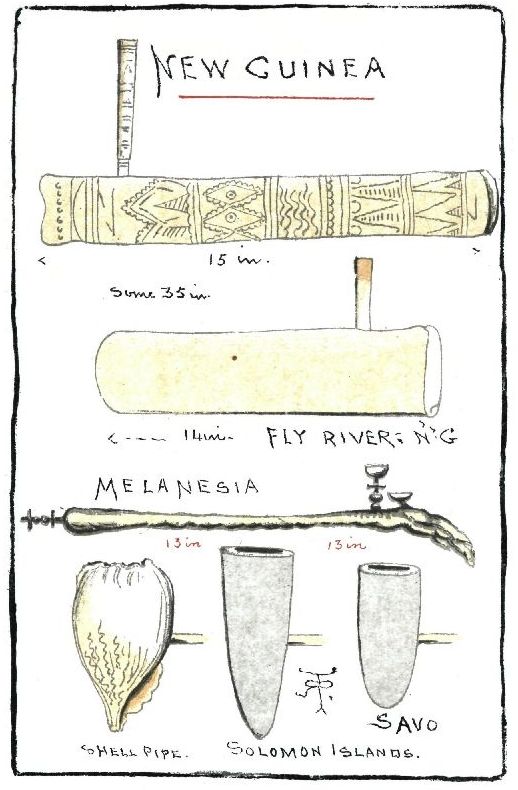 NEW GUINEA
15 in.
Some 35 in.
14 in. FLY RIVER; N:G
MELANESIA
13 in 13 in
SAVO
SHELL PIPE. SOLOMON ISLANDS.